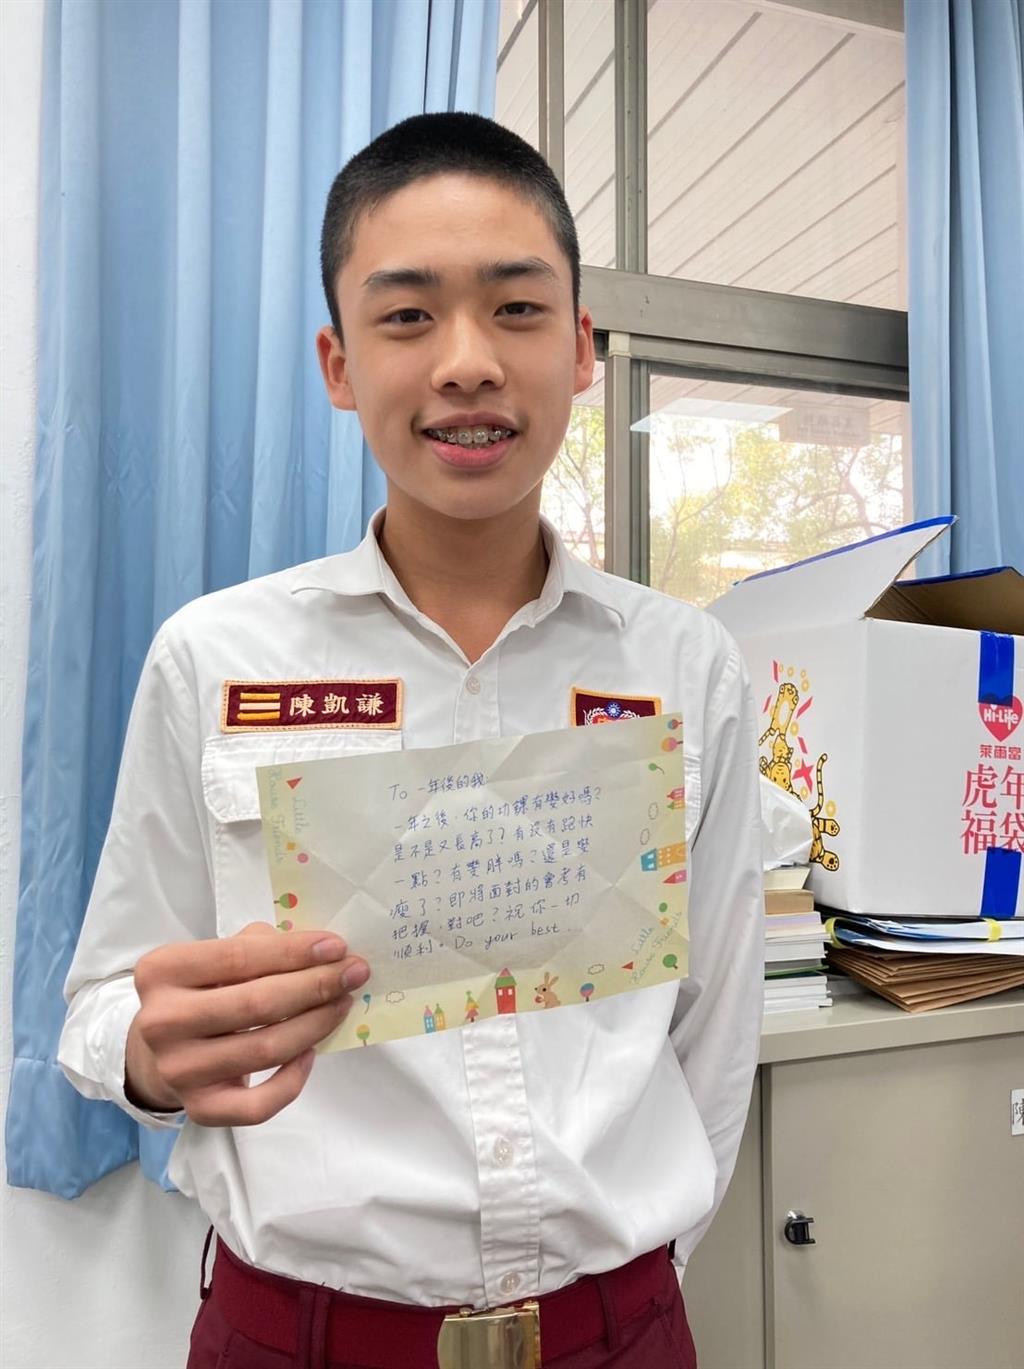 陳凱謙
To 一年後的我:
一年之後,你的功課有變好嗎?
是不是又長高了?有沒有跑快
一點?有變胖嗎?還是變
瘦了?即將面對的會考有
把握,對吧?祝你一切
順利。Do your best.
Little
House Friends
Little
House Friends
Hi-Life
萊爾富
虎年
福袋
陳